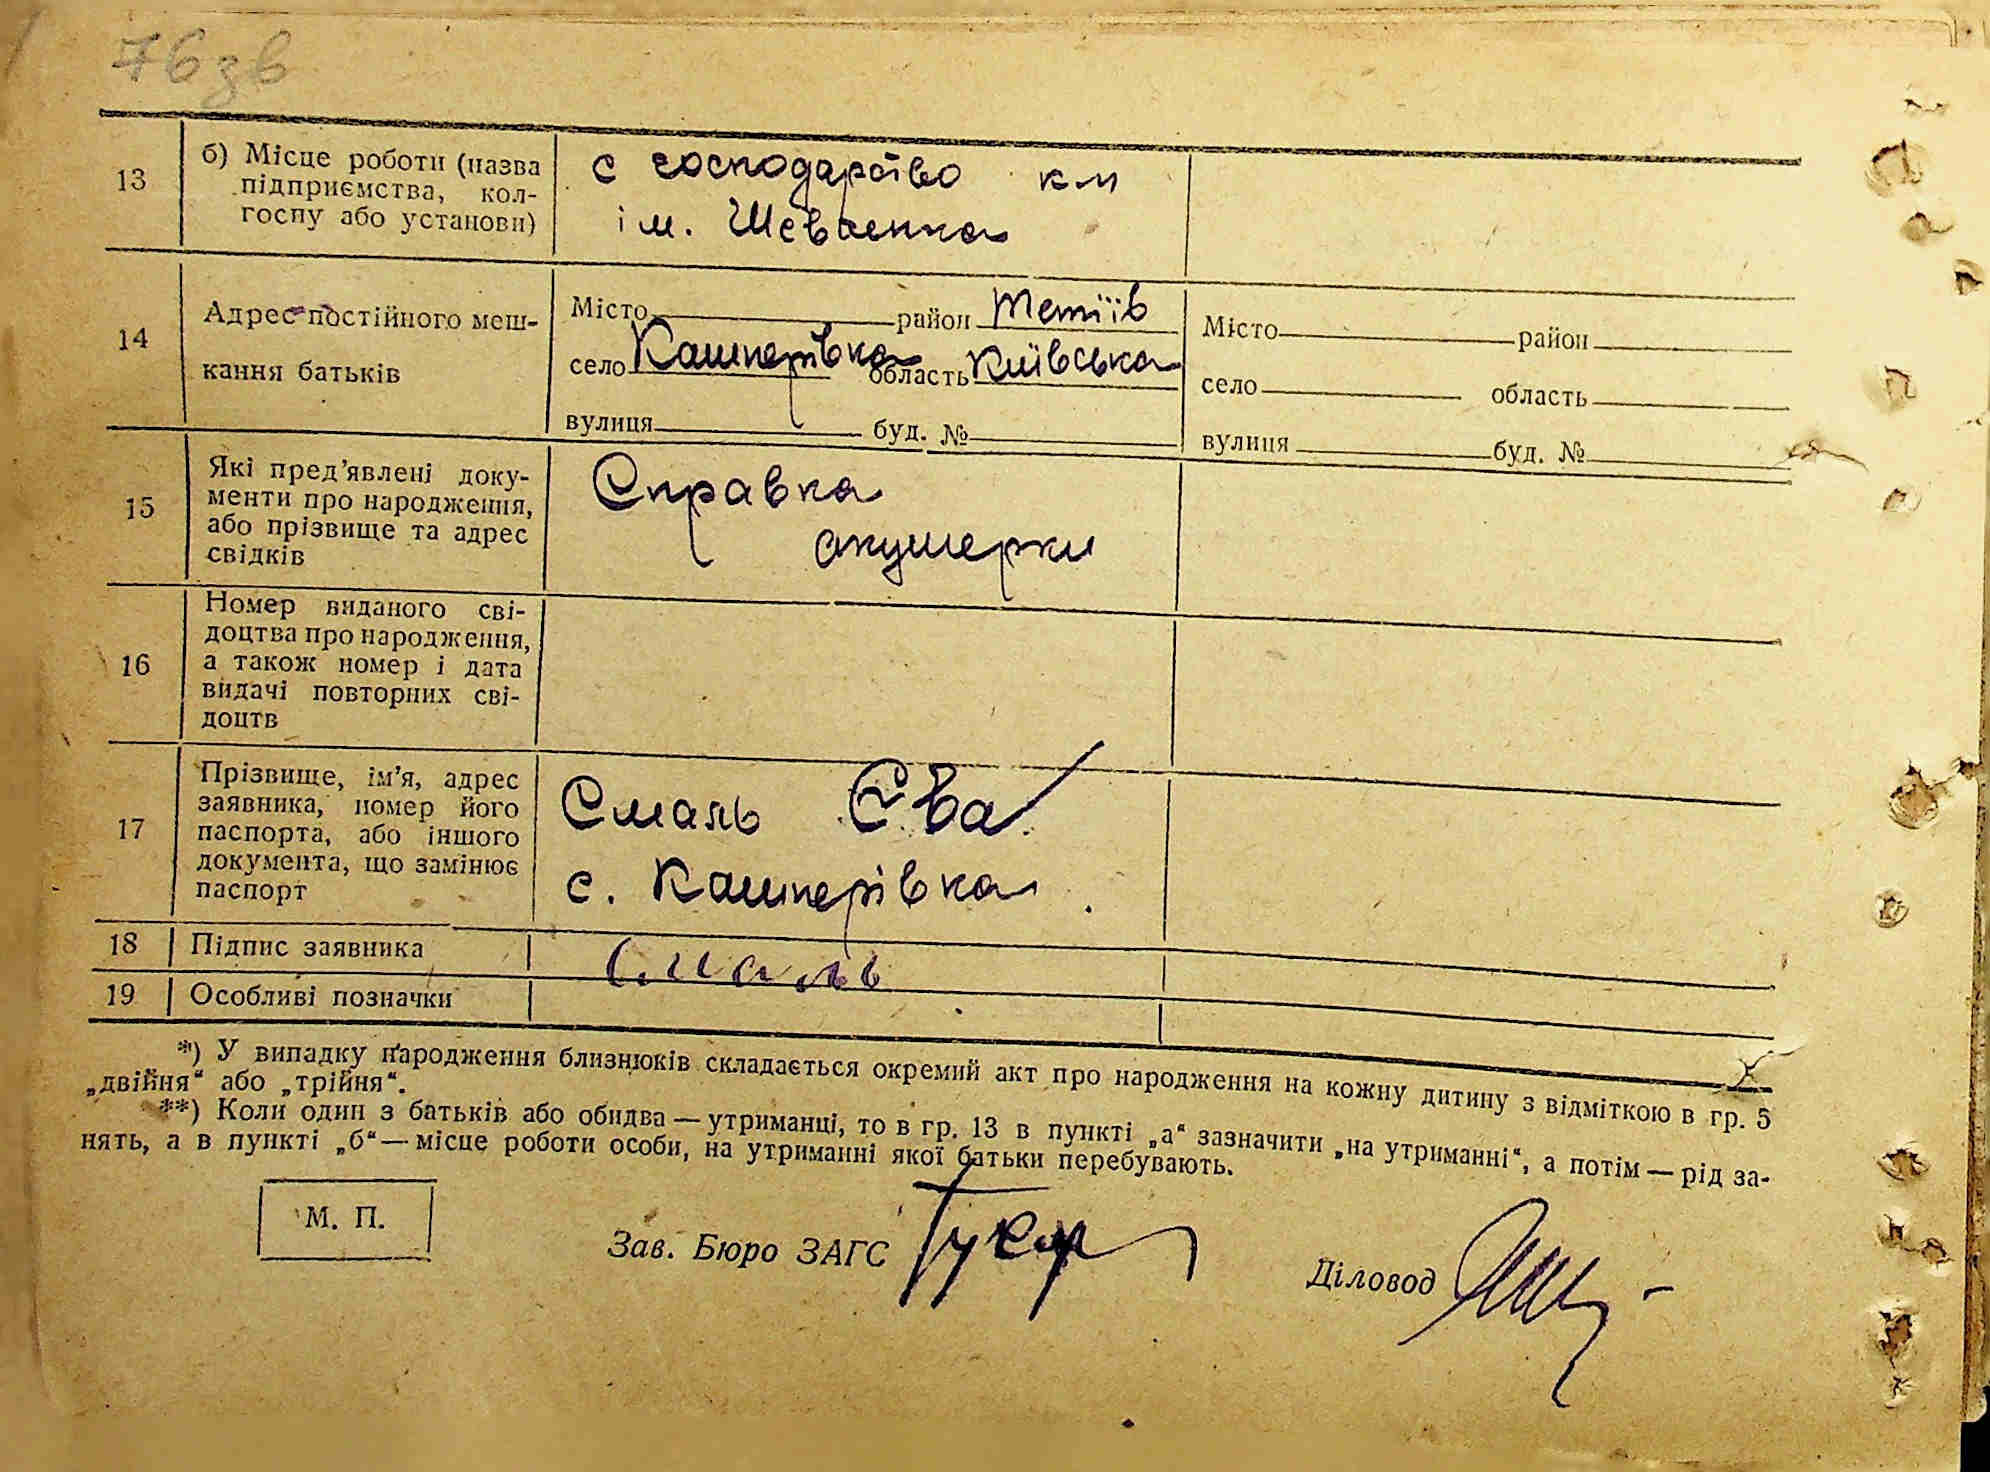 76зв
13
б) Місце роботи (назва
підприємства, кол-
госпу або установи)
с господарство км
ім. Шевченка
14
Адрес постійного меш-
кання батьків
Місто район Тетіїв
село Кашперівка область Київська
вулиця буд. №
Місто район
село область
вулиця буд. №
15
Які пред’явлені доку-
менти про народження,
або прізвище та адрес
свідків
Справка
акушерки
16
Номер виданого сві-
доцтва про народження,
а також номер і дата
видачі повторних сві-
доцтв
17
Прізвище, ім’я, адрес
заявника, номер його
паспорта, або іншого
документа, що замінює
паспорт
Смаль Єва
с. Кашперівка
18 Підпис заявника
Смаль
19 Особливі позначки
*) У випадку народження близнюків складається окремий акт про народження на кожну дитину з відміткою в гр. 5
„двійня“ або „трійня“.
**) Коли один з батьків або обидва — утриманці, то в гр. 13 в пункті „а“ зазначити „на утриманні“, а потім — рід за-
нять, а в пункті „б“ — місце роботи особи, на утриманні якої батьки перебувають.
М. П.
Зав. Бюро ЗАГС
Діловод